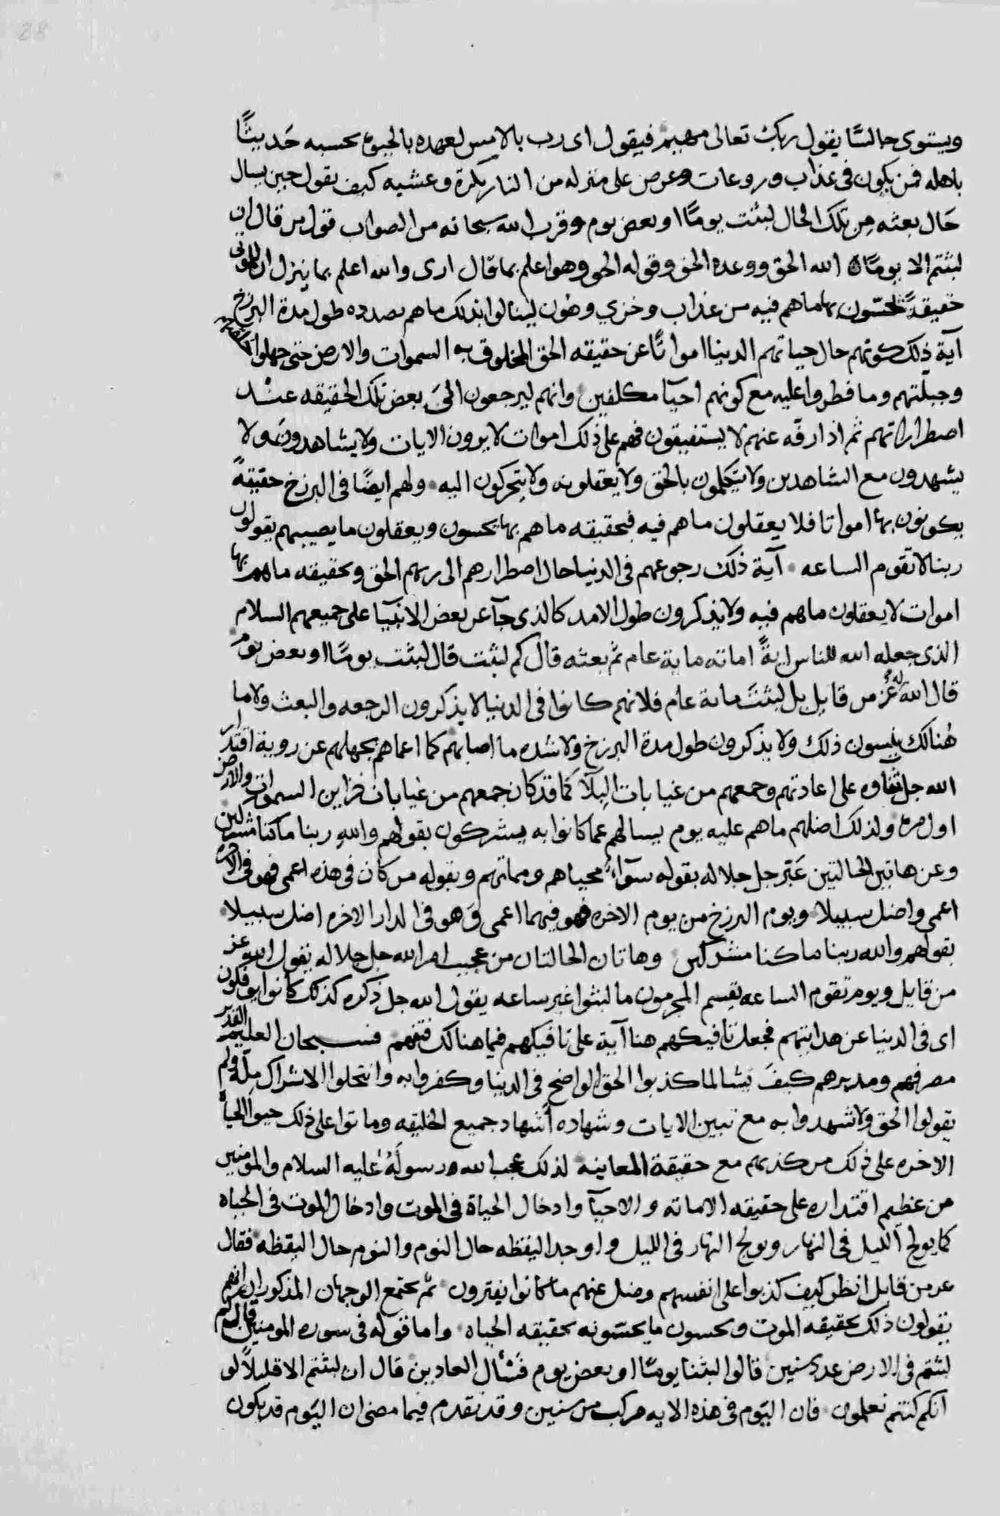 ويستوى جالسًا يقول ربك تعالى مهيم فيقول اى رب بالامس لعهده بالحيوة يحسبه حَديثًا
باهله فمن يكون فى عذاب وروعات وعرض على منزله من النار بكرة وعشيه كيف يقول حين يسال
حَال بعثه مِن تلك الحال لبثت يومًا او بعض يوم وقرب الله سبحانه من الصواب قول من قال ان
لبثتم الا يومًا الله الحق ووعده الحق وقوله الحق وهو اعلم بما قال ارى والله اعلم بما ينزل ان للموتى
حقيقةً يحسّون بها ما هم فيه من عذاب وخزي وهون لينالوا بذلك ما هم بصدده طول مدة البرزخ
آية ذلك كونهم حال حياتهم الدنيا امواتًا عن حقيقه الحق المخلوق به السموات والارض حتى جهلوا
وجبلّتهم وما فطروا عليه مع كونهم احيآ مكلفين وانهم ليرجعون الى بعض تلك الحقيقه عند
اضطراراتهم ثم اذا رفه عنهم لا يستفيقون فهم على ذلك اموات لا يرون الايات ولا يشاهدون ولا
يشهدون مع الشاهدين ولا يتكلمون بالحق ولا يعقلونه ولا يتحركون اليه ولهم ايضًا فى البرزخ حقيقةً
يكونون بها امواتا فلا يعقلون ما هم فيه فبحقيقه ما هم بها يحسون ويعقلون ما يصيبهم يقولون
ربنا لا تقوم الساعه آية ذلك رجوعهم فى الدنيا حال اضطرارهم الى ربهم الحق وبحقيقه ما هم بها
اموات لا يعقلون ما هم فيه ولا يذكرون طول الامد كالذى جآ عن بعض الانبيآ على جميعهم السلام
الذى جعله الله للناس ايةً اماته ماية عام ثم بعثه قال كم لبثت قال لبثت يومًا او بعض يوم
قال الله عز من قايل بل لبثت ماية عام فلانهم كانوا فى الدنيا لا يذكرون الرجعه والبعث ولا ما
هُنالك ينسون ذلك ولا يذكرون طول مدة البرزخ ولا شده ما اصابهم كما اعماهم بجهلهم عن روية اقتدار
الله جل ثناوه على اعادتهم وجمعهم من غيابات البلآ كما قد كان جمعهم من غيابات خزاين السموات والارض
اول مرة ولذلك اضلهم ما هم عليه يوم يسالهم عما كانوا به يشركون بقولهم والله ربنا ما كنا مشركين
وعن هاتين الحالتين عَبّر جل جلاله بقوله سوآء محياهم ومماتهم وبقوله من كان فى هذه اعمى فهو فى الاخرة
اعمى واضل سبيلا ويوم البرزخ من يوم الاخره فهو فيهما اعمى وَهو فى الدار الاخره اضل سبيلا
بقولهم والله ربنا ما كنا مشركين وهاتان الحالتان من عجيب امر الله جل جلاله يقول الله عز
من قايل ويوم تقوم الساعه يقسم المجرمون ما لبثوا غير ساعه يقول الله جل ذكره كذلك كانوا يوفكون
اى فى الدنيا عن هدايتهم فجعل تافيكهم هنا آية على تافيكهم فيما هنالك فتفهم فسبحان العليم القدير
مصرفهم ومدبرهم كيفَ يشا لما كذبوا الحق الواضح فى الدنيا وكفروا به وانتحلوا الاشراك مله ولم
يقولوا الحق ولا شهدوا به مع تبيين الايات وشهاده أشهاد جميع الخليقه وماتوا على ذلك حيوا الحياة
الاخره على ذلك من كذبهم مع حقيقة المعاينه لذلك عجب الله ورسولَهُ عليه السلام والمومنين
من عظيم اقتداره على حقيقه الاماته والاحيآ وادخال الحياة فى الموت وادخال الموت فى الحياه
كما يولج الليل فى النهار ويولج النهار فى الليل واوجد اليقظه حال النوم والنوم حال اليقظه فقال
عز من قايل انظر كيف كذبوا على انفسهم وضل عنهم ما كانوا يفترون ثم يجتمع الوجهان المذكوران انهم
يقولون ذلك بحقيقه الموت ويحسون ما يحسّونه بحقيقه الحياه واما قوله فى سوره المومنين قال كم
لبثتم فى الارض عدد سنين قالوا لبثنا يومًا او بعض يوم فسْأل العادين قال ان لبثتم الا قليلاً لو
انكم كنتم تعلمون فان اليَوم فى هذه الايه مركب من سنين وقد تقدم فيما مضى ان اليَوم قد يكون